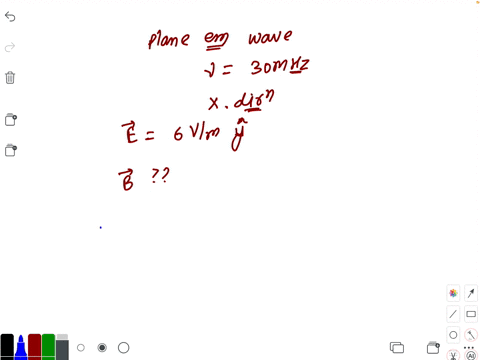 Plane em wave
ν = 30 mHz
x. dirⁿ
E⃗ = 6 V/m ŷ
B⃗ ??